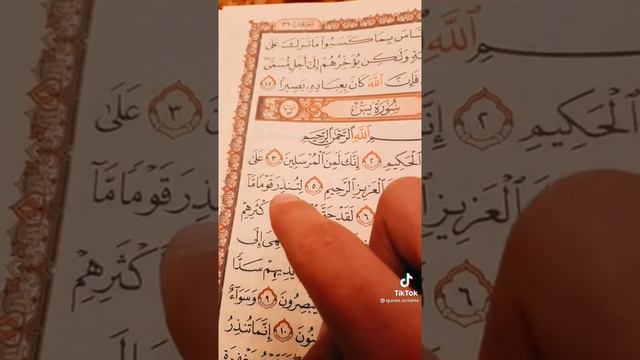 ٣٦
ـاسَ بِمَا كَسَبُوا۟ مَا تَرَكَ عَلَىٰ
ـةٍ وَلَٰكِن يُؤَخِّرُهُمْ إِلَىٰٓ أَجَلٍ مُّسَمًّى
فَإِنَّ ٱللَّهَ كَانَ بِعِبَادِهِۦ بَصِيرًا ٤٥
سُورَةُ يسٓ
ٱللَّهِ ٱلرَّحْمَٰنِ ٱلرَّحِيمِ
ٱلْحَكِيمِ ٢ إِنَّكَ لَمِنَ ٱلْمُرْسَلِينَ ٣ عَلَىٰ
ٱلْعَزِيزِ ٱلرَّحِيمِ ٥ لِتُنذِرَ قَوْمًا مَّآ
٦ لَقَدْ حَقَّ كْثَرِهِمْ
هِىَ إِلَى
يْدِيهِمْ سَدًّا
يُبْصِرُونَ ٩ وَسَوَآءٌ
نُونَ ١٠ إِنَّمَا تُنذِرُ
مَغْفِرَةٍ
TikTok
@quran.onlaine